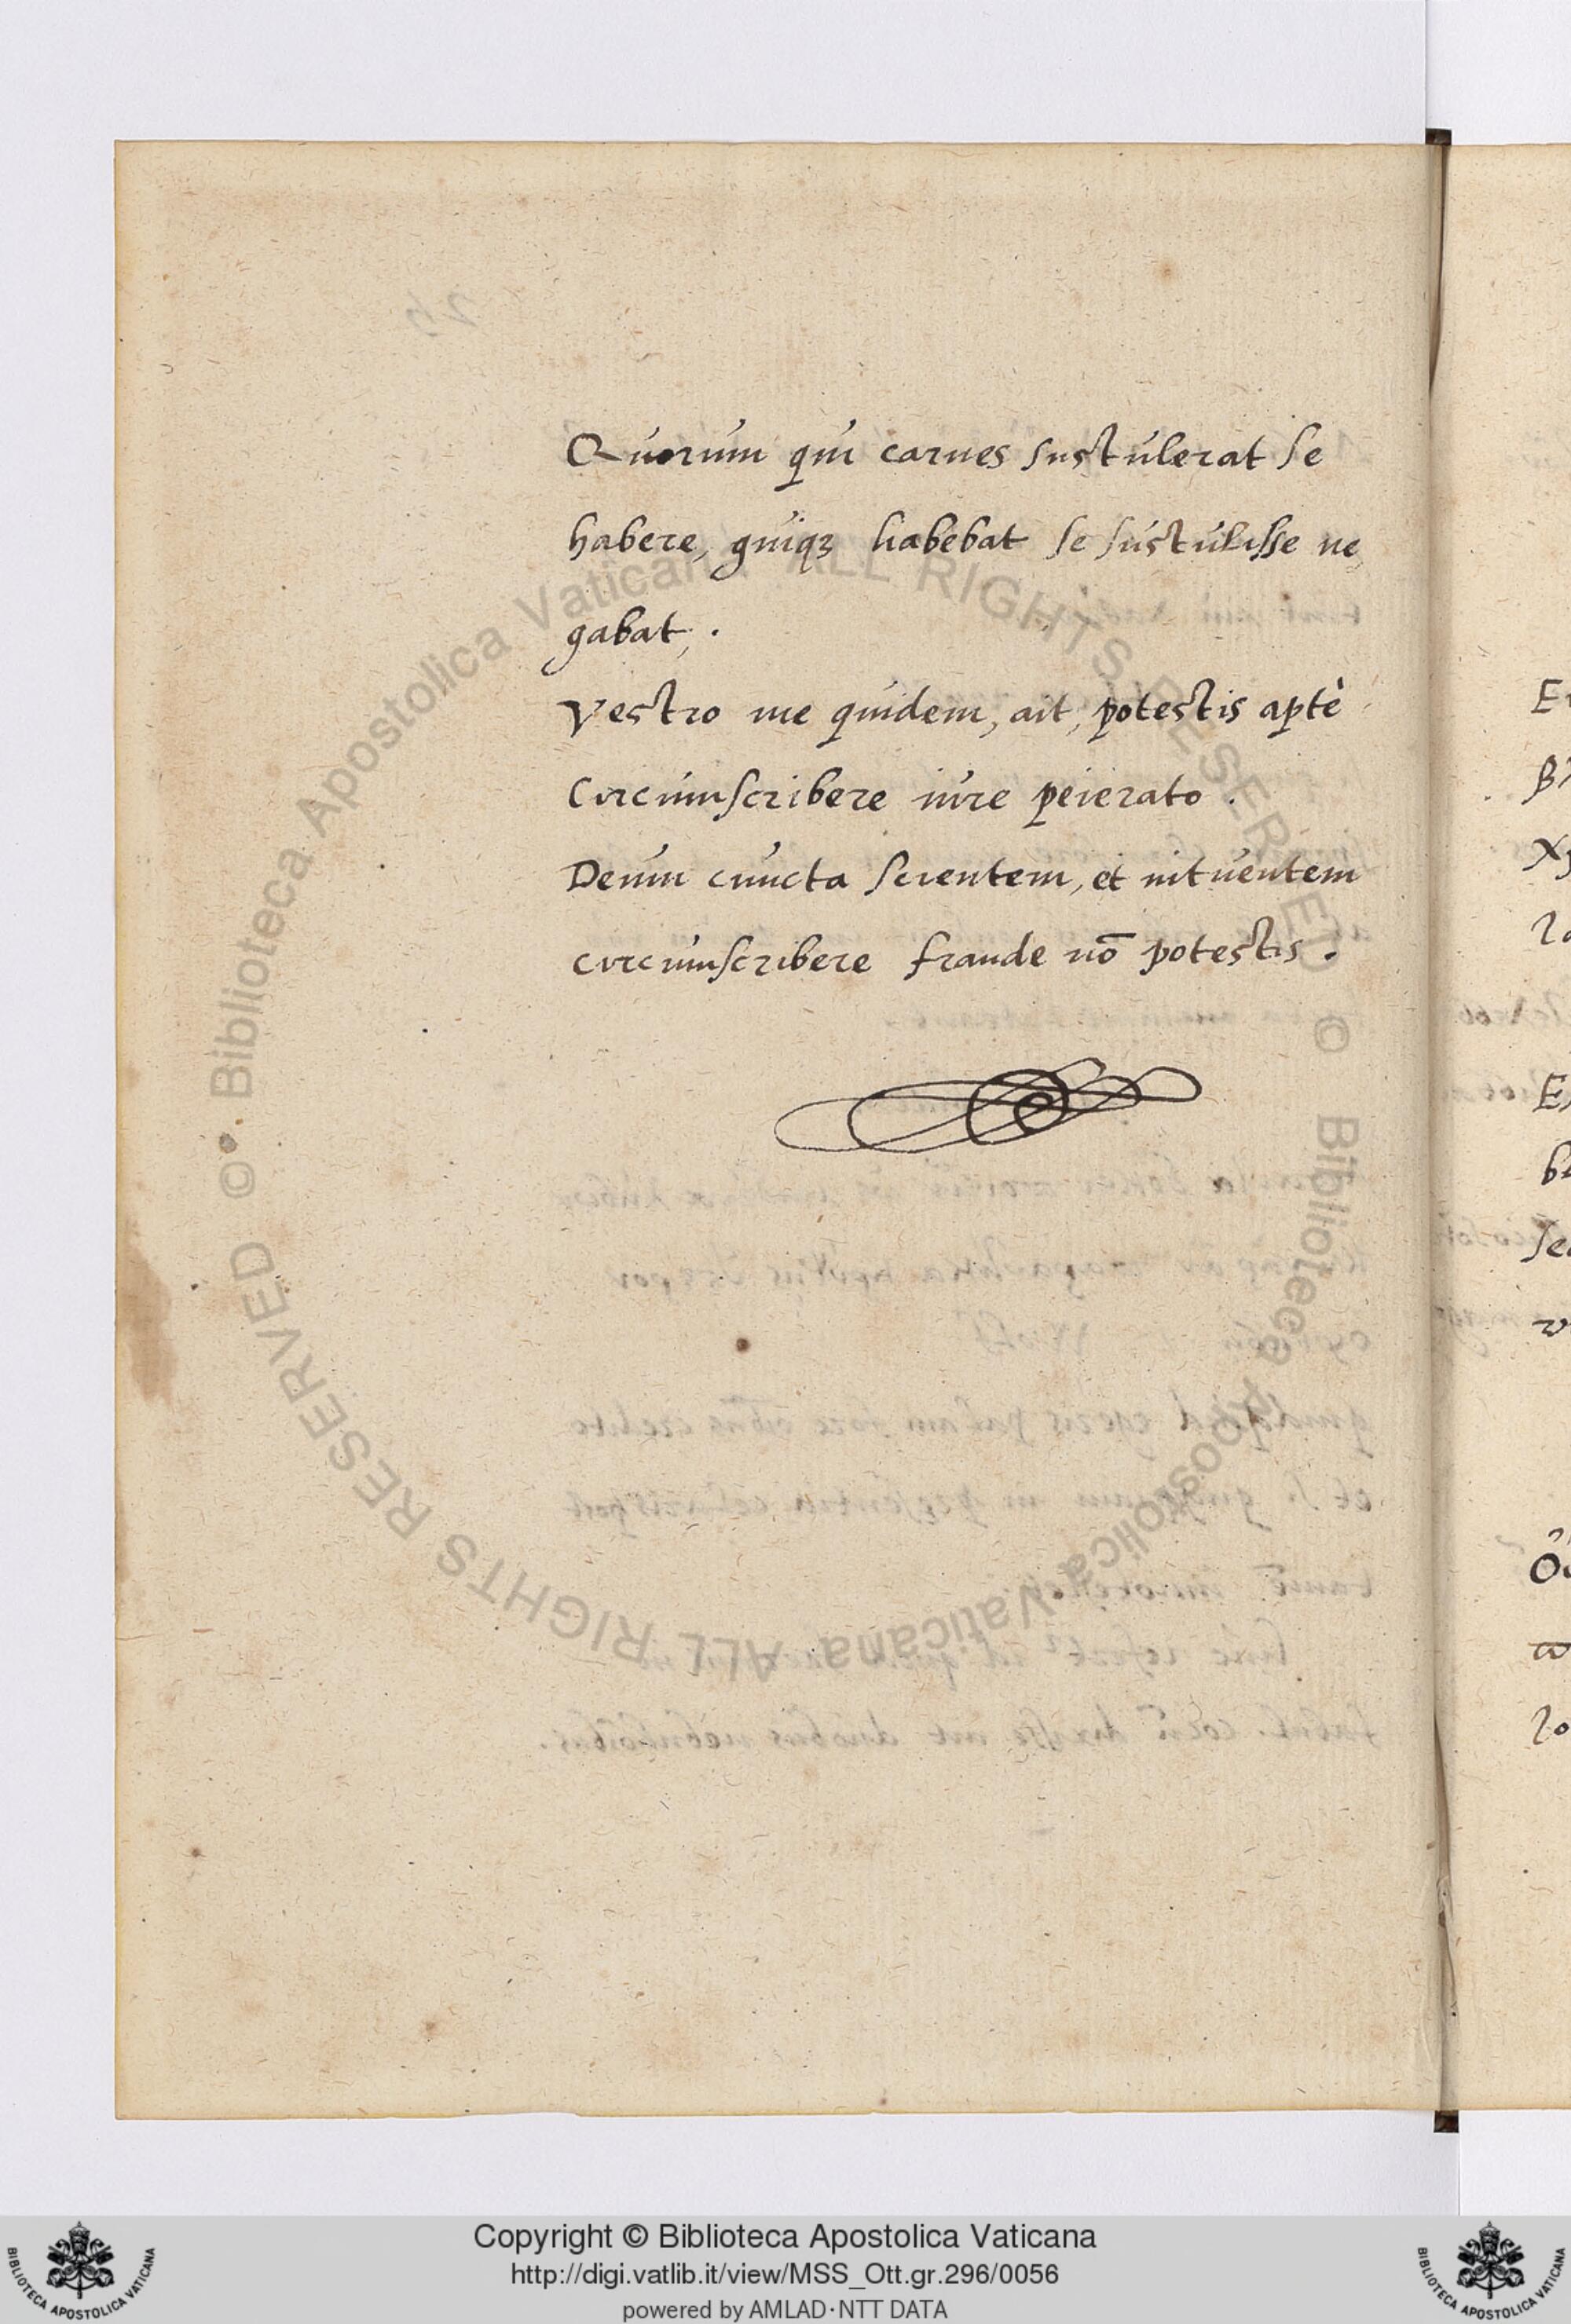 Quorum qui carnes sustulerat se
habere, quiqз habebat se sustulisse ne,
gabat, .
Vestro me quidem, ait, potestis aptè
circumscribere iure peierato .
Deum cuncta scientem, et intuentem
circumscribere fraude nō potestis .
Copyright © Biblioteca Apostolica Vaticana
http://digi.vatlib.it/view/MSS_Ott.gr.296/0056
powered by AMLAD·NTT DATA
BIBLIOTECA APOSTOLICA VATICANA
BIBLIOTECA APOSTOLICA VATICANA
© Biblioteca Apostolica Vaticana ALL RIGHTS RESERVED
© Biblioteca Apostolica Vaticana ALL RIGHTS RESERVED